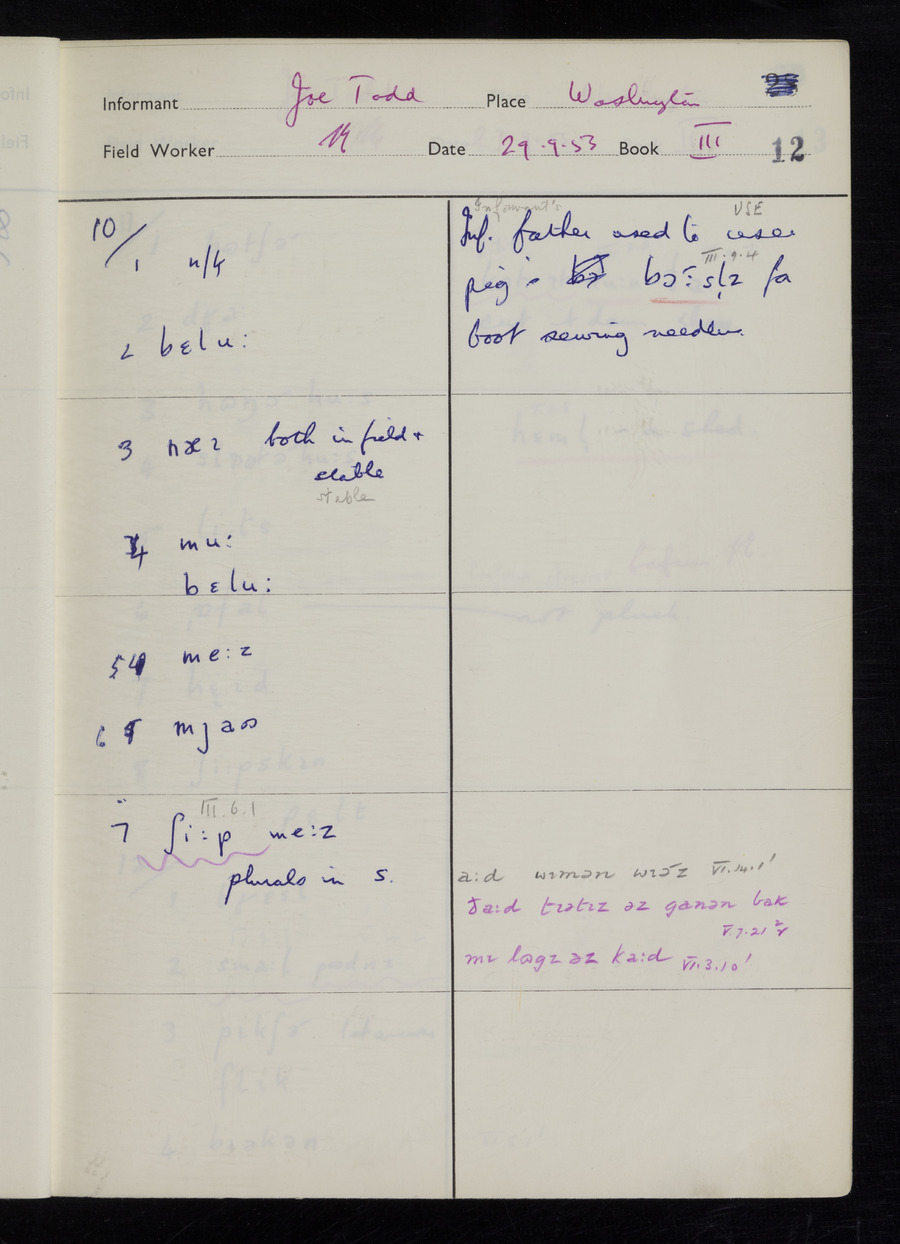 Informant Joe Todd Place Washington
Field Worker Date 29.9.53 Book III 12
10/
1 n/k
2 bɛlu:
3 næɪ both in field +
stable
stable
4 mu:
bɛlu:
5 me:z
6 mjaʊ
III.6.1
7 ʃi:p me:z
plurals in s.
Informant's
Inf. father used to use USE
III.9.4
pig's bɔ̄:sļz fə
boot sewing needles.
a:d wɪmən wɪə̄z VI.14.1'
ða:d tɪətɪz əz ganən bak
V.7.21
mɪ lɒgz əz ka:d VI.3.10'